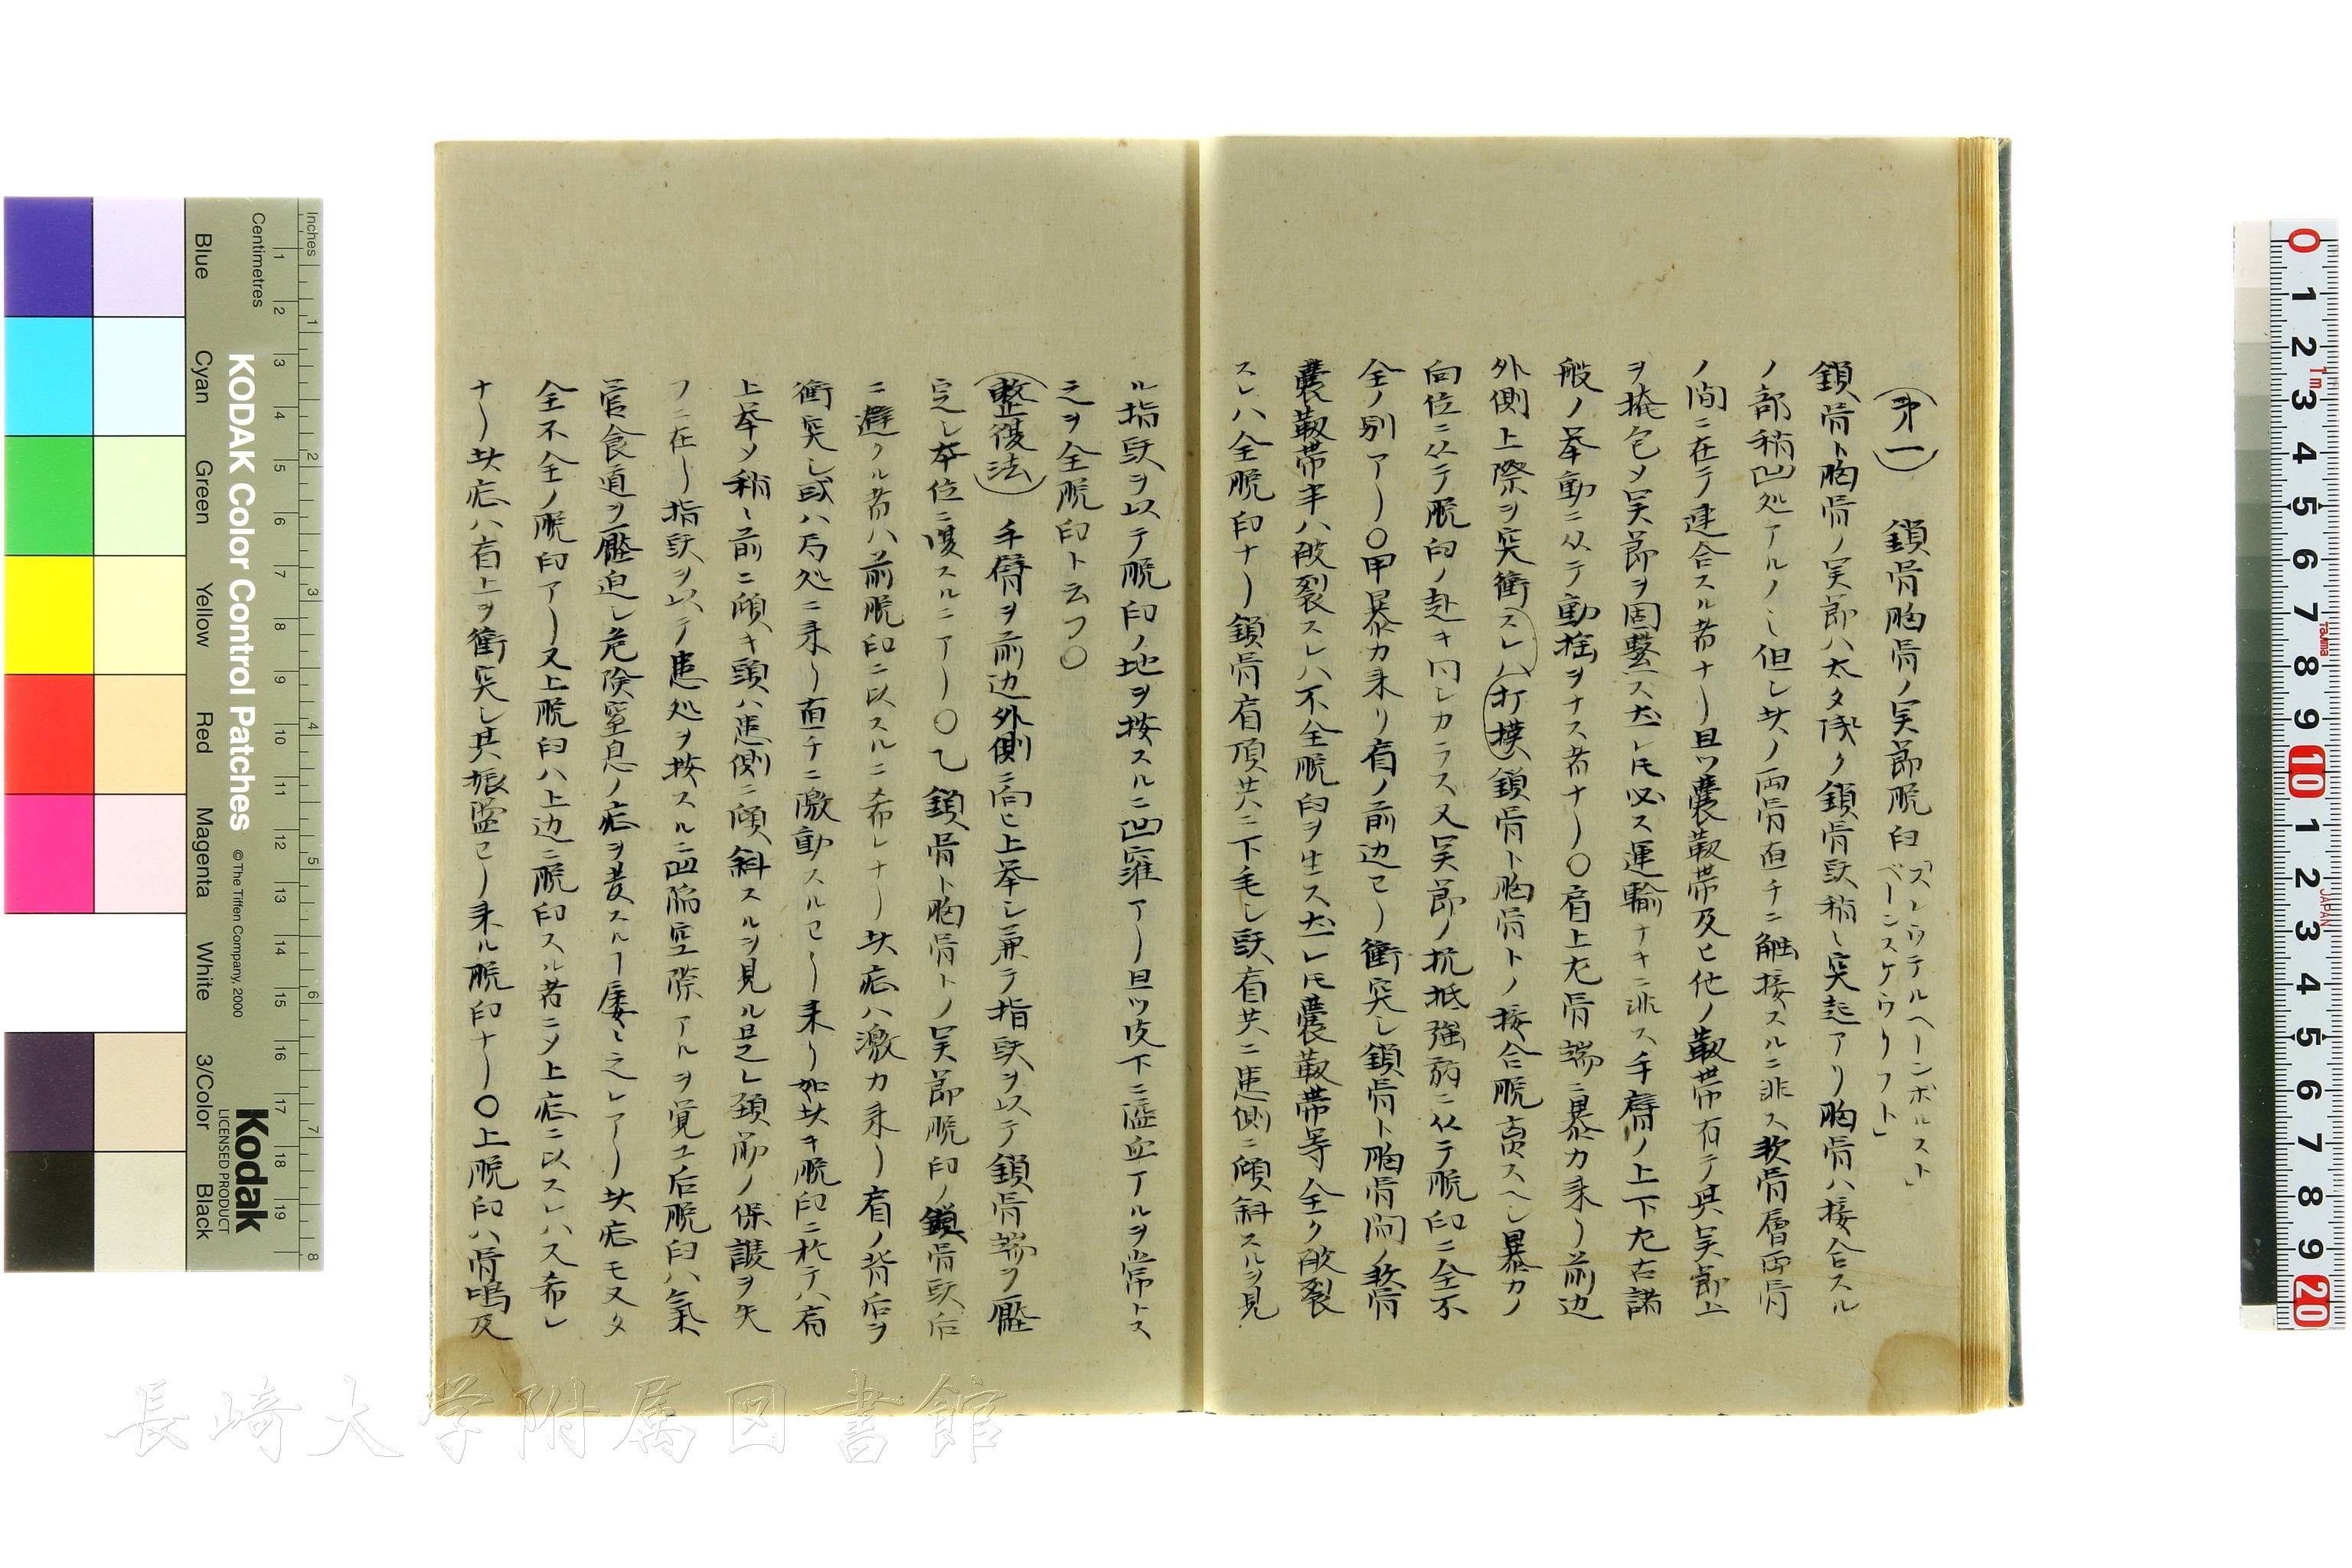 (第一) 鎖骨胸骨ノ関節脱臼「スレウテルベーンボルスト」
ベーンスケウリフト」
鎖骨ト胸骨ノ関節ハ太タ 鎖骨頭稍々突起アリ胸骨ハ接合スル
ノ部稍凹処アルノミ但シ此ノ両骨直チニ触接スルニ非ス軟骨層両骨
ノ間ニ在テ連合スル者ナリ且ツ囊靱帯及ヒ他ノ靱帯有テ其関節上
ヲ掩包メ関節ヲ固繫ス𪜈必ス運輸ナキニ非ス手臂ノ上下左右諸
般ノ挙動ニ从テ動揺ヲナス者ナリ〇肩上尤骨端ニ暴力来リ前辺
外側上際ヲ突衝(スレハ)(打撲)鎖骨ト胸骨トノ接合脱 スヘシ暴力ノ
向位ニ从テ脱臼ノ赴キ同シカラス又関節ノ抗抵強弱ニ从テ脱臼ニ全不
全ノ別アリ〇甲暴力来リ肩ノ前辺ヨリ衝突シ鎖骨ト胸骨間ノ軟骨
囊靱帯半ハ破裂スレハ不全脱臼ヲ生ス𪜈囊靱帯等全ク破裂
スレハ全脱臼ナリ鎖骨肩頂共ニ下垂シ頭肩共ニ患側ニ傾斜スルヲ見
ル指頭ヲ以テ脱臼ノ地ヲ按スルニ凹窪アリ且ツ皮下ニ溢血アルヲ常トス
之ヲ全脱臼ト云フ〇
(整復法) 手臂ヲ前辺外側ニ向ヒ上挙シ兼テ指頭ヲ以テ鎖骨端ヲ壓
定シ本位ニ復スルニアリ〇乙鎖骨ト胸骨トノ関節脱臼ノ鎖骨頭后
ニ避クル者ハ前脱臼ニ以スルニ希レナリ此症ハ激力来リ肩ノ背后ヲ
衝突シ或ハ局処ニ来リ直チニ激動スルヨリ来リ如此キ脱臼ニ於テハ肩
上挙メ稍々前ニ傾キ頭ハ患側ニ傾斜スルヲ見ル是レ頚節ノ保護ヲ失
フニ在リ指頭ヲ以テ患処ヲ按スルニ凹陥空際アルヲ覚ユ后脱臼ハ氣
管食道ヲ壓迫シ危険窒息ノ症ヲ発スルヿ屡々之レアリ此症モ又タ
全不全ノ脱臼アリ又上脱臼ハ上辺ニ脱臼スル者ニメ上症ニ以スレハ又希レ
ナリ此症ハ肩上ヲ衝突シ其振盪ヨリ来ル脱臼ナリ〇上脱臼ハ骨嗚及
KODAK Color Control Patches
© The Tiffen Company, 2000
Kodak
LICENSED PRODUCT
Inches
Centimetres
Blue
Cyan
Green
Yellow
Red
Magenta
White
3/Color
Black
1 2 3 4 5 6 7 8 9 10 11 12 13 14 15 16 17 18 19
1 2 3 4 5 6 7 8
0 1 2 3 4 5 6 7 8 9 10 1 2 3 4 5 6 7 8 9 20
1m
Tajima
JAPAN
長崎大学附属図書館